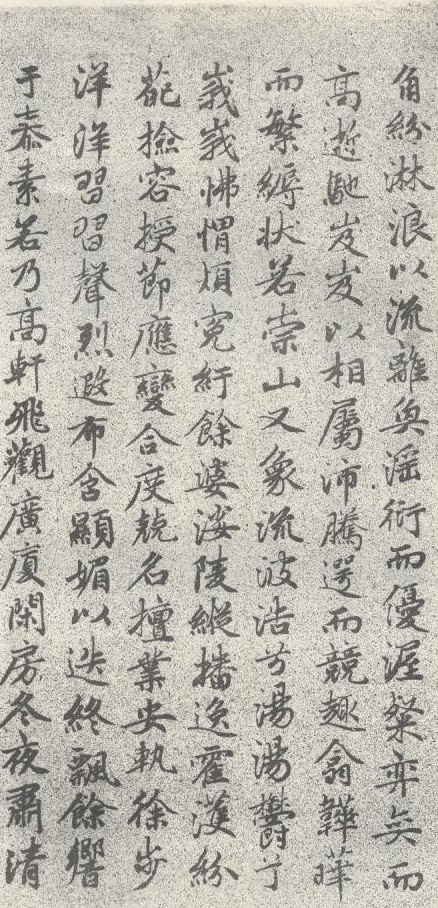 角紛淋浪以流離奐淫衍而優渥粲弈奕而
高逝馳岌岌以相屬沛騰遌而競趣翕韡曄
而繁縟狀若崇山又象流波浩兮湯湯鬱兮
峩峩怫愲煩寃紆餘婆娑陵縱播逸霍濩紛
葩撿容授節應變合度兢名擅業安軌徐步
洋洋習習聲烈遐布含顯媚以送終飄餘響
于泰素若乃高軒飛觀廣廈閑房冬夜肅清